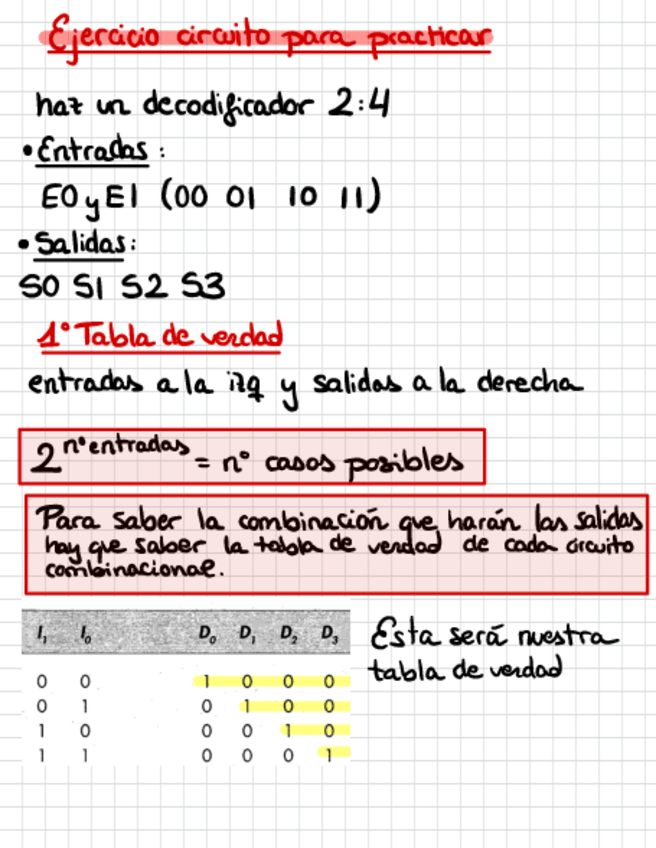 Ejercicio circuito para practicar
haz un decodificador 2:4
• Entradas :
E0 y E1 (00 01 10 11)
• Salidas:
S0 S1 S2 S3
1° Tabla de verdad
entradas a la izq y salidas a la derecha
2^nº entradas = nº casos posibles
Para saber la combinación que harán las salidas
hay que saber la tabla de verdad de cada circuito
combinacional.
I₁ I₀ D₀ D₁ D₂ D₃
0 0 1 0 0 0
0 1 0 1 0 0
1 0 0 0 1 0
1 1 0 0 0 1
Esta será nuestra
tabla de verdad